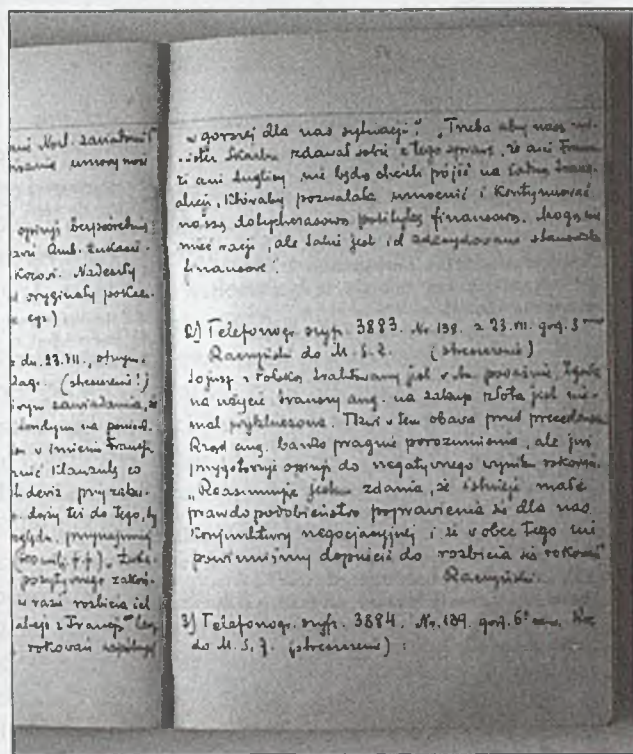 ni Kocł. zawiadomił
umowy now
opinji bezpośredniej
Amb. Łukasie-
Nadeszły
oryginały
egz.)
z dn. 23.VII., otrzym.
Zagr. (streszczenie!)
zawiadamia, że
Londyn na
w imieniu
klauzulę co
deviz przy zaku-
dąży też do tego, by
przynajmniej
zakoń-
w razie rozbicia się
z Francją
rokowań
w gorszej dla nas sytuacji." „Trzeba aby nasz mi-
nister Skarbu zdawał sobie z tego sprawę, że ani Francu-
zi ani Anglicy nie będą chcieli pójść na żadną trans-
akcję, któraby pozwalała umocnić i kontynuować
naszą dotychczasową politykę finansową. Mogą nie
mieć racji, ale takie jest ich zdecydowane stanowisko
finansowe".
2) Telefonogr. szyfr. 3883. Nr 138. z 23.VII. godz. 3
Raczyński do M.S.Z. (streszczenie)
Sojusz z Polską traktowany jest b. poważnie. Zgoda
na użycie transzy ang. na zakup złota jest nie-
mal wykluczona. Tkwi w tem obawa przed precedensem.
Rząd ang. bardzo pragnie porozumienia, ale już
przygotowuje opinję do negatywnego wyniku rokowań.
„Reasumując jestem zdania, że istnieje małe
prawdopodobieństwo poprawienia się dla nas
konjunktury negocjacyjnej i że wobec tego nie
powinniśmy dopuścić do rozbicia się rokowań"
Raczyński.
3) Telefonogr. szyfr. 3884. Nr. 139. godz. 6
do M.S.Z. (streszczenie) :